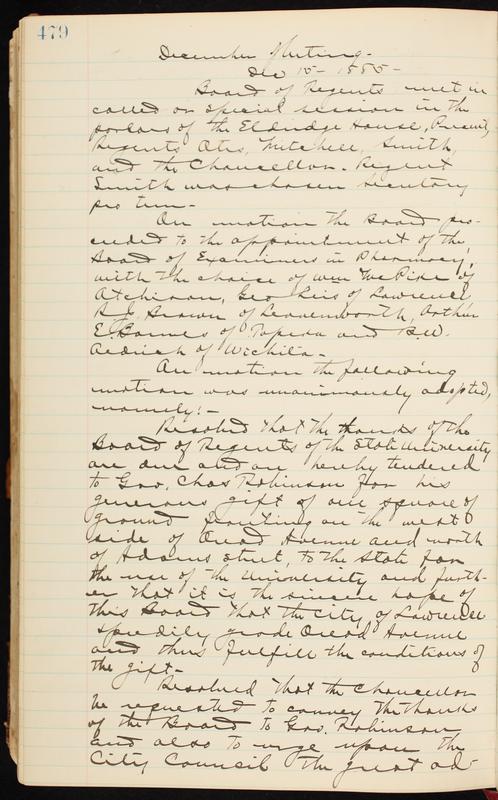 479
December Meeting-
Dec 15- 1885-
Board of Regents met in
called or special session in the
parlors of the Eldridge House, Present,
Regents Otis, Mitchell, Smith,
and the Chancellor. Regent
Smith was chosen Secretary
pro tem-
On motion the Board pro-
ceeded to the appointment of the
Board of Examiners in Pharmacy,
with the choice of Wm McPike of
Atchison, Geo Leis of Lawrence,
R J Brown of Leavenworth, Arthur
E Barnes of Topeka and B.W.
Aldrich of Wichita-
On motion the following
motion was unanimously adopted,
namely:-
Resolved that the thanks of the
Board of Regents of the State University
are due and are hereby tendered
to Gov. Chas Robinson for his
generous gift of one square of
ground fronting on the west
side of Oread Avenue and north
of Adams street, to the State for
the use of the University and furth-
er that it is the sincere hope of
this Board that the City of Lawrence
speedily grade Oread Avenue
and thus fulfill the conditions of
the gift-
Resolved that the Chancellor
be requested to convey the thanks
of the Board to Gov. Robinson
and also to urge upon the
City Council the great ad-